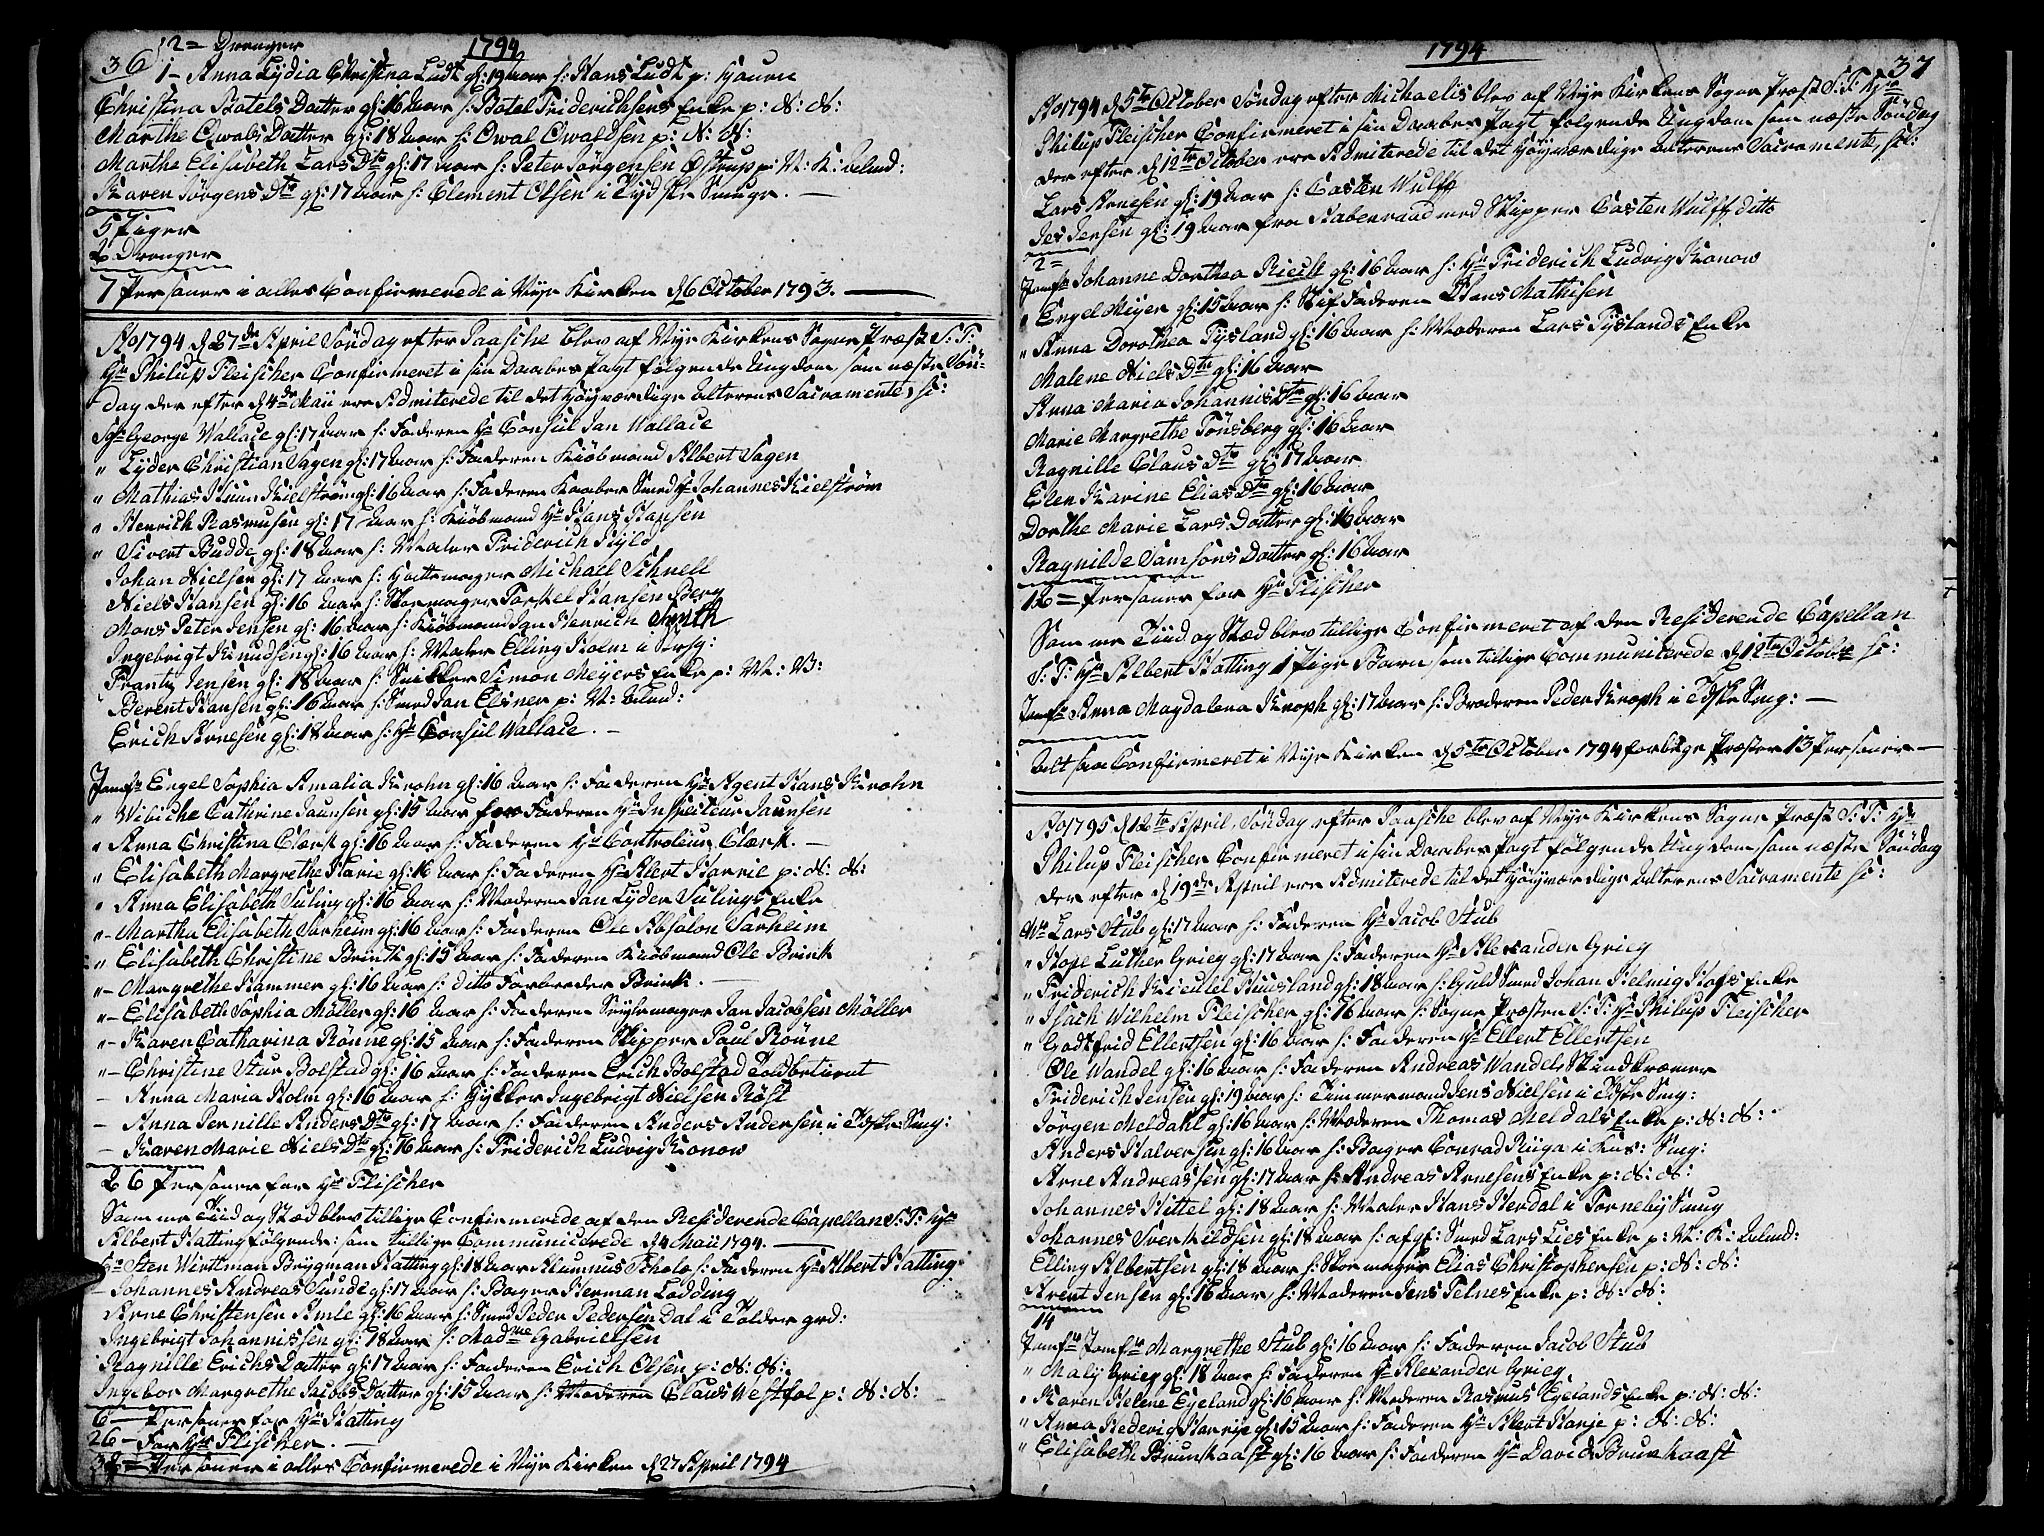 36 2= Drenger 1794
1- Anna Lydia Christina Ludt gl: 19 Aar h: Hans Ludt p: Hauen
Christina Botels Datter gl: 16 Aar h: Botel Friderichsens Enke p: d: d:
Marthe Owals Datter gl: 18 Aar h: Owal Owaldsen p: d: d:
Marthe Elisabeth Lars Dtr gl: 17 Aar h: Peter Jørgensen Østrup p: N: K: Almd:
Karen Jørgens Dtr gl: 17 Aar h: Clement Olsen i Tydske Smuge. —
5 Piger
2 Drenger
7 Personer i alles Confirmerede i Nye Kirken d 6 October 1793. —
Ao 1794 d 27de April Søndag efter Paasche blev af Nye Kirkens Sogne Præst S: T:
Hr Philup Fleischer Confirmeret i sin Daabes Pagt følgende Ungdom, som næste Søn-
dag der efter d 4de Maii ere Admiterede til det høyværdige Alterens Sacramente, h:
Sr George Wallace gl: 17 Aar h: Faderen Hr Consul Jan Wallace
" Lyder Christian Sagen gl: 17 Aar h: Faderen Kiøbmand Albert Sagen
" Mathias Kuun Kielstrøm gl: 16 Aar h: Faderen Kaaber Smed Hr Johannes Kielstrøm
" Henrich Rasmusen gl: 17 Aar h: Kiøbmand Hr Hans Hansen
" Sivert Budde gl: 18 Aar h: Maler Friderich Hyld
Johan Nielsen gl: 17 Aar h: Hattemager Michael Schnell
Niels Hansen gl: 16 Aar h: Skoemager Torkel Hansen Berg
Mons Peter Jensen gl: 16 Aar h: Kiøbmand Jan Henrich Smith
Ingebrigt Knudsen gl: 16 Aar h: Maler Elling Holm i
Frantz Jensen gl: 18 Aar h: Snikker Simon Meyers Enke p: M: B:
Berent Hansen gl: 16 Aar h: Smed Jan Elsner p: N: Almd:
Erich Arnesen gl: 18 Aar h: Hr Consul Wallace. —
Jomfr Engel Sophia Amalia Krohn gl: 16 Aar h: Faderen Hr Agent Hans Krohn
" Wibiche Cathrine Jaunsen gl: 15 Aar hos Faderen Hr Inspecteur Jaunsen
" Anna Christina Clærk gl: 16 Aar h: Faderen Hr Controlleur Clærk. —
" Elisabeth Margrethe Harie gl: 16 Aar h: Faderen Hr Alert Harrie p: d: d:
" Anna Elisabeth Suling gl: 16 Aar h: Moderen Jan Lyder Sulings Enke
"- Martha Elisabeth Sarheim gl: 16 Aar h: Faderen Ole Absalon Sarheim
" Elisabeth Christine Brink gl: 15 Aar h: Faderen Kiøbmand Ole Brink
"- Margrethe Hammer gl: 16 Aar h: ditto Farbroder Brink. —
"- Elisabeth Sophia Møller gl: 16 Aar h: Faderen Seylemager Jan Jacobsen Møller
"- Karen Catharina Rønne gl: 15 Aar h: Faderen Skipper Paul Rønne
"- Christine Stub Bolstad gl: 16 Aar h: Faderen Erich Bolstad Toldbetient
- Anna Maria Holm gl: 16 Aar h: Bykker Ingebrigt Nielsen Røst
- Anna Pernille Anders Dtr gl: 17 Aar h: Faderen Anders Andersen i Tydske Smug:
- Karen Marie Niels Dtr gl: 16 Aar h: Friderich Ludvig Konow
26 Personer for Hr Flischer
Samme Tiid og Stæd blev tillige Confirmerede af den Residerende Capellan S: T: Hr
Albert Hatting følgende: som tillige Communicerede d 4 Maii 1794. —
Sr Sten Wirttman Brügman Hatting gl: 18 Aar Alumnus Schola h: Faderen Hr Albert Hatting
- Johannes Andreas Sunde gl: 17 Aar h: Bager Herman Lødding
Arne Christensen Amle gl: 16 Aar h: Smed Peder Pedersen Dal i Tolder grd:
Ingebrigt Johannissen gl: 18 Aar h: Madme Gabrielsen
Ragnille Erichs Datter gl: 17 Aar h: Faderen Erich Olsen p: d: d:
Ingebor Margrethe Jacobs Datter gl: 15 Aar h: Moderen Claus Westfal p: d: d:
6- Personer for Hr Hatting
26- For Hr Flischer. —
32= Personer i alles Confirmerede i Nye Kirken d 27 April 1794
1794 37
Ao 1794 d 5te October Søndag efter Michaelis blev af Nye Kirkens Sogne Præst S: T: Hr
Philup Fleischer Confirmeret i sin Daabes Pagt følgende Ungdom som næste Søndag
der efter d 12te October ere Admiterede til det høyværdige Alterens Sacramente, h:
Lars Arnesen gl: 19 Aar h: Casten Wulff
Jes Jensen gl: 19 Aar fra Aabenraad med Skipper Casten Wulff ditto
2=
Jomfr Johanne Dorthea Rieck gl: 16 Aar h: Hr Friderich Ludvig Konow
" Engel Meyer gl: 15 Aar h: Stiffaderen Hans Mathisen
" Anna Dorothea Tysland gl: 16 Aar h: Moderen Lars Tyslands Enke
Malene Niels Dtr gl: 16 Aar
Anna Maria Johannis Dtr gl: 16 Aar
Marie Margrethe Tønsberg gl: 16 Aar
Ragnille Claus Dtr gl: 17 Aar
Elen Karine Elias Dtr gl: 16 Aar
Dorthe Marie Lars Datter gl: 16 Aar
Ragnilde Samsons Datter gl: 16 Aar
12= Personer for Hr Flischer
Samme Tiid og Stæd blev tillige Confirmeret af den Residerende Capellan
S: T: Hr Albert Hatting 1 Pige Barn, som tillige Communiterede d 12te October h:
Jomfr Anna Magdalena Kroph gl: 17 Aar h: Broderen Peder Kroph i Tydske Smug: —
Alt saa Confirmeret i Nye Kirken d 5te October 1794 for begge Præster 13 Personer —
Ao 1795 d 12te April, Søndag efter Paasche blev af Nye Kirkens Sogne Præst S: T: Hr
Philup Fleischer Confirmeret i sin Daabes Pagt følgende Ungdom som næste Søndag
der efter d 19de April ere Admiterede til det høyværdige Alterens Sacramente h:
Mr Lars Stub gl: 17 Aar h: Faderen Hr Jacob Stub
" Hope Luther Grieg gl: 17 Aar h: Faderen Hr Alexander Grieg
" Friderich Kieulel Huusland gl: 18 Aar h: Guld Smed Johan Helmig Hofs Enke
" Isach Wilhelm Fleischer gl: 16 Aar h: Sogne Præsten S: T: Hr Philup Fleischer
" Godtfrid Ellertsen gl: 16 Aar h: Faderen Hr Ellert Ellertsen
Ole Wandel gl: 16 Aar h: Faderen Andreas Wandel Skindkræmer
Friderich Jensen gl: 19 Aar h: Timmermand Jens Nielsen i Tydske Smug:
Jørgen Meldahl gl: 16 Aar h: Moderen Thomas Meldals Enke p: d: d:
Anders Halversen gl: 16 Aar h: Bager Conrad Rüga i Kns: Smug:
Arne Andreassen gl: 17 Aar h: Andreas Arnesens Enke p: d: d:
Johannes Kittel gl: 18 Aar h: Maler Hans Herdal i Tornebye Smug
Johannes Sverkildsen gl: 18 Aar h: afg: Smed Lars Lies Enke p: N: K: Almd:
Elling Albertsen gl: 18 Aar h: Skoemager Elias Christophersen p: d: d:
Arent Jensen gl: 16 Aar, h: Moderen Jens Telnes Enke p: d: d:
14
Jomfr Jomfr Margrethe Stub gl: 16 Aar h: Faderen Jacob Stub
" Maly Grieg gl: 18 Aar h: Faderen Hr Alexander Grieg
" Karen Helene Eyeland gl: 16 Aar h: Moderen Rasmus Eyelands Enke p: d: d:
" Anna Hedevig Harrije gl: 15 Aar h: Faderen Hr Albert Harje p: d: d:
" Elisabeth Brunhaast gl: 16 Aar h: Faderen Hr David Brunhaast